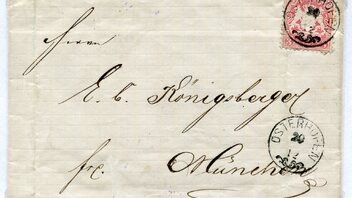 Herrn
E. v. Königsberger
frc.
München
OSTERHOFEN
20
12